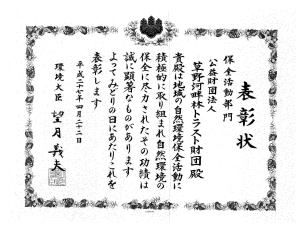 表彰状
保全活動部門
公益財団法人
草野河畔林トラスト財団殿
貴殿は地域の自然環境保全活動に
積極的に取り組まれ自然環境の
保全に尽力されたその功績は
誠に顕著なものがあります
よってみどりの日にあたりこれを
表彰します
平成二十七年四月二十二日
環境大臣 望月義夫